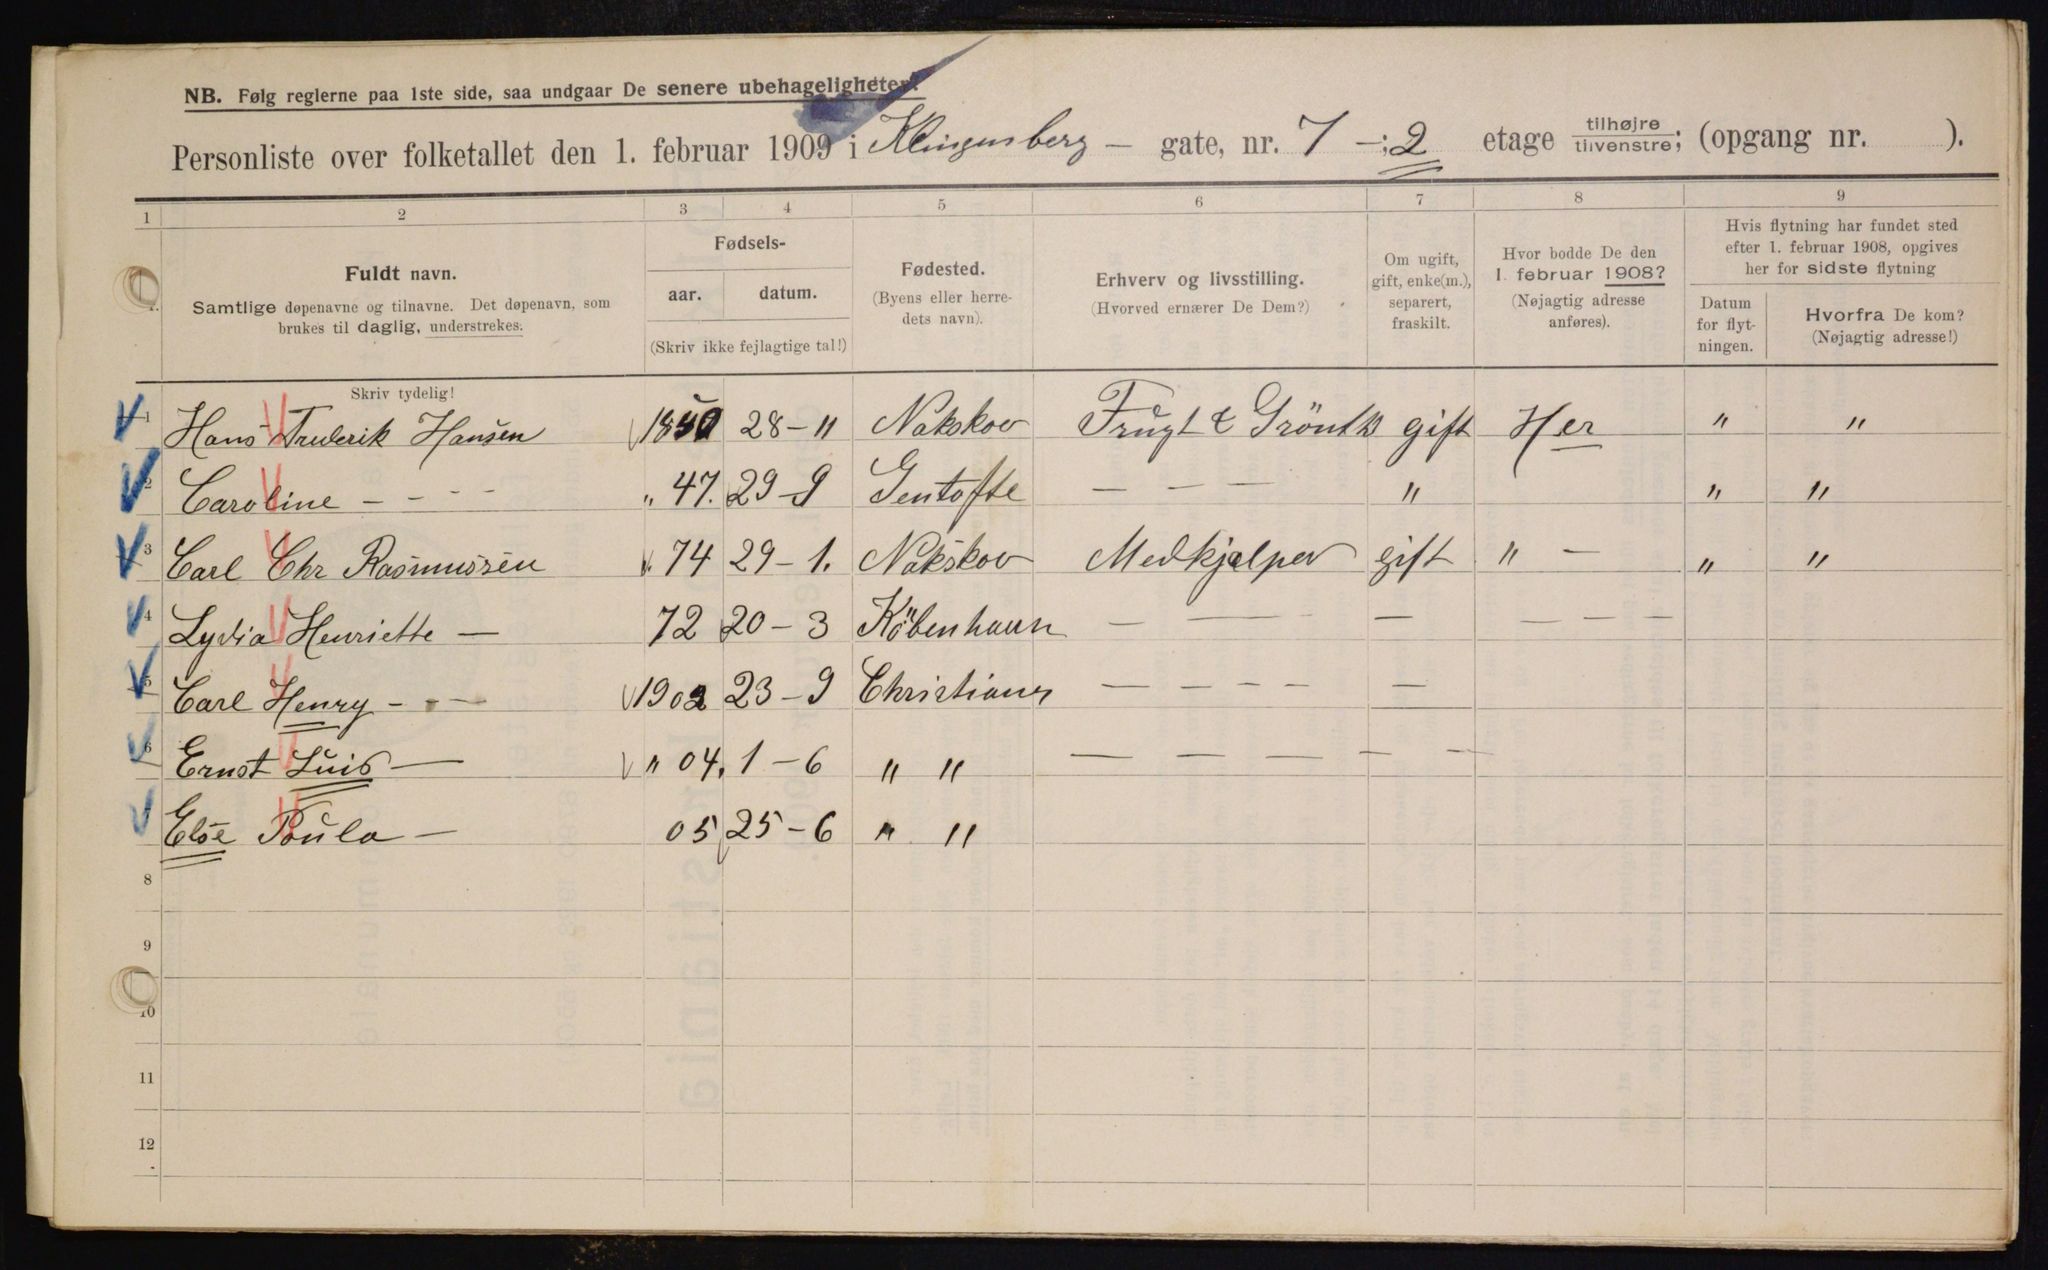 NB. Følg reglerne paa 1ste side, saa undgaar De senere ubehageligheter!
Personliste over folketallet den 1. februar 1909 i Klingenberg – gate, nr. 7 –; 2 etage tilhøjre/tilvenstre; (opgang nr. ).
1 2 3 4 5 6 7 8 9
Fuldt navn.
Samtlige døpenavne og tilnavne. Det døpenavn, som
brukes til daglig, understrekes.
Skriv tydelig!
Fødsels-
aar. datum.
(Skriv ikke fejlagtige tal!)
Fødested.
(Byens eller herre-
dets navn).
Erhverv og livsstilling.
(Hvorved ernærer De Dem?)
Om ugift,
gift, enke(m.),
separert,
fraskilt.
Hvor bodde De den
1. februar 1908?
(Nøjagtig adresse
anføres).
Hvis flytning har fundet sted
efter 1. februar 1908, opgives
her for sidste flytning
Datum
for flyt-
ningen.
Hvorfra De kom?
(Nøjagtig adresse!)
1 Hans Frederik Hansen 1850 28 – 11 Nakskov Frugt & Grönth gift Her " "
2 Caroline – - - - " 47. 29 – 9 Gentofte — — — " " "
3 Carl Chr Rasmussen 74 29 – 1. Nakskov Medhjelper gift " – " "
4 Lydia Henriette — 72 20 – 3 Köbenhavn — — — — — — —
5 Carl Henry - - - 1902 23 – 9 Christiania — — — — —
6 Ernst Luis — " 04. 1 – 6 " " — — — — — —
Else Poula — 05 25 – 6 " "
8
9
10
11
12